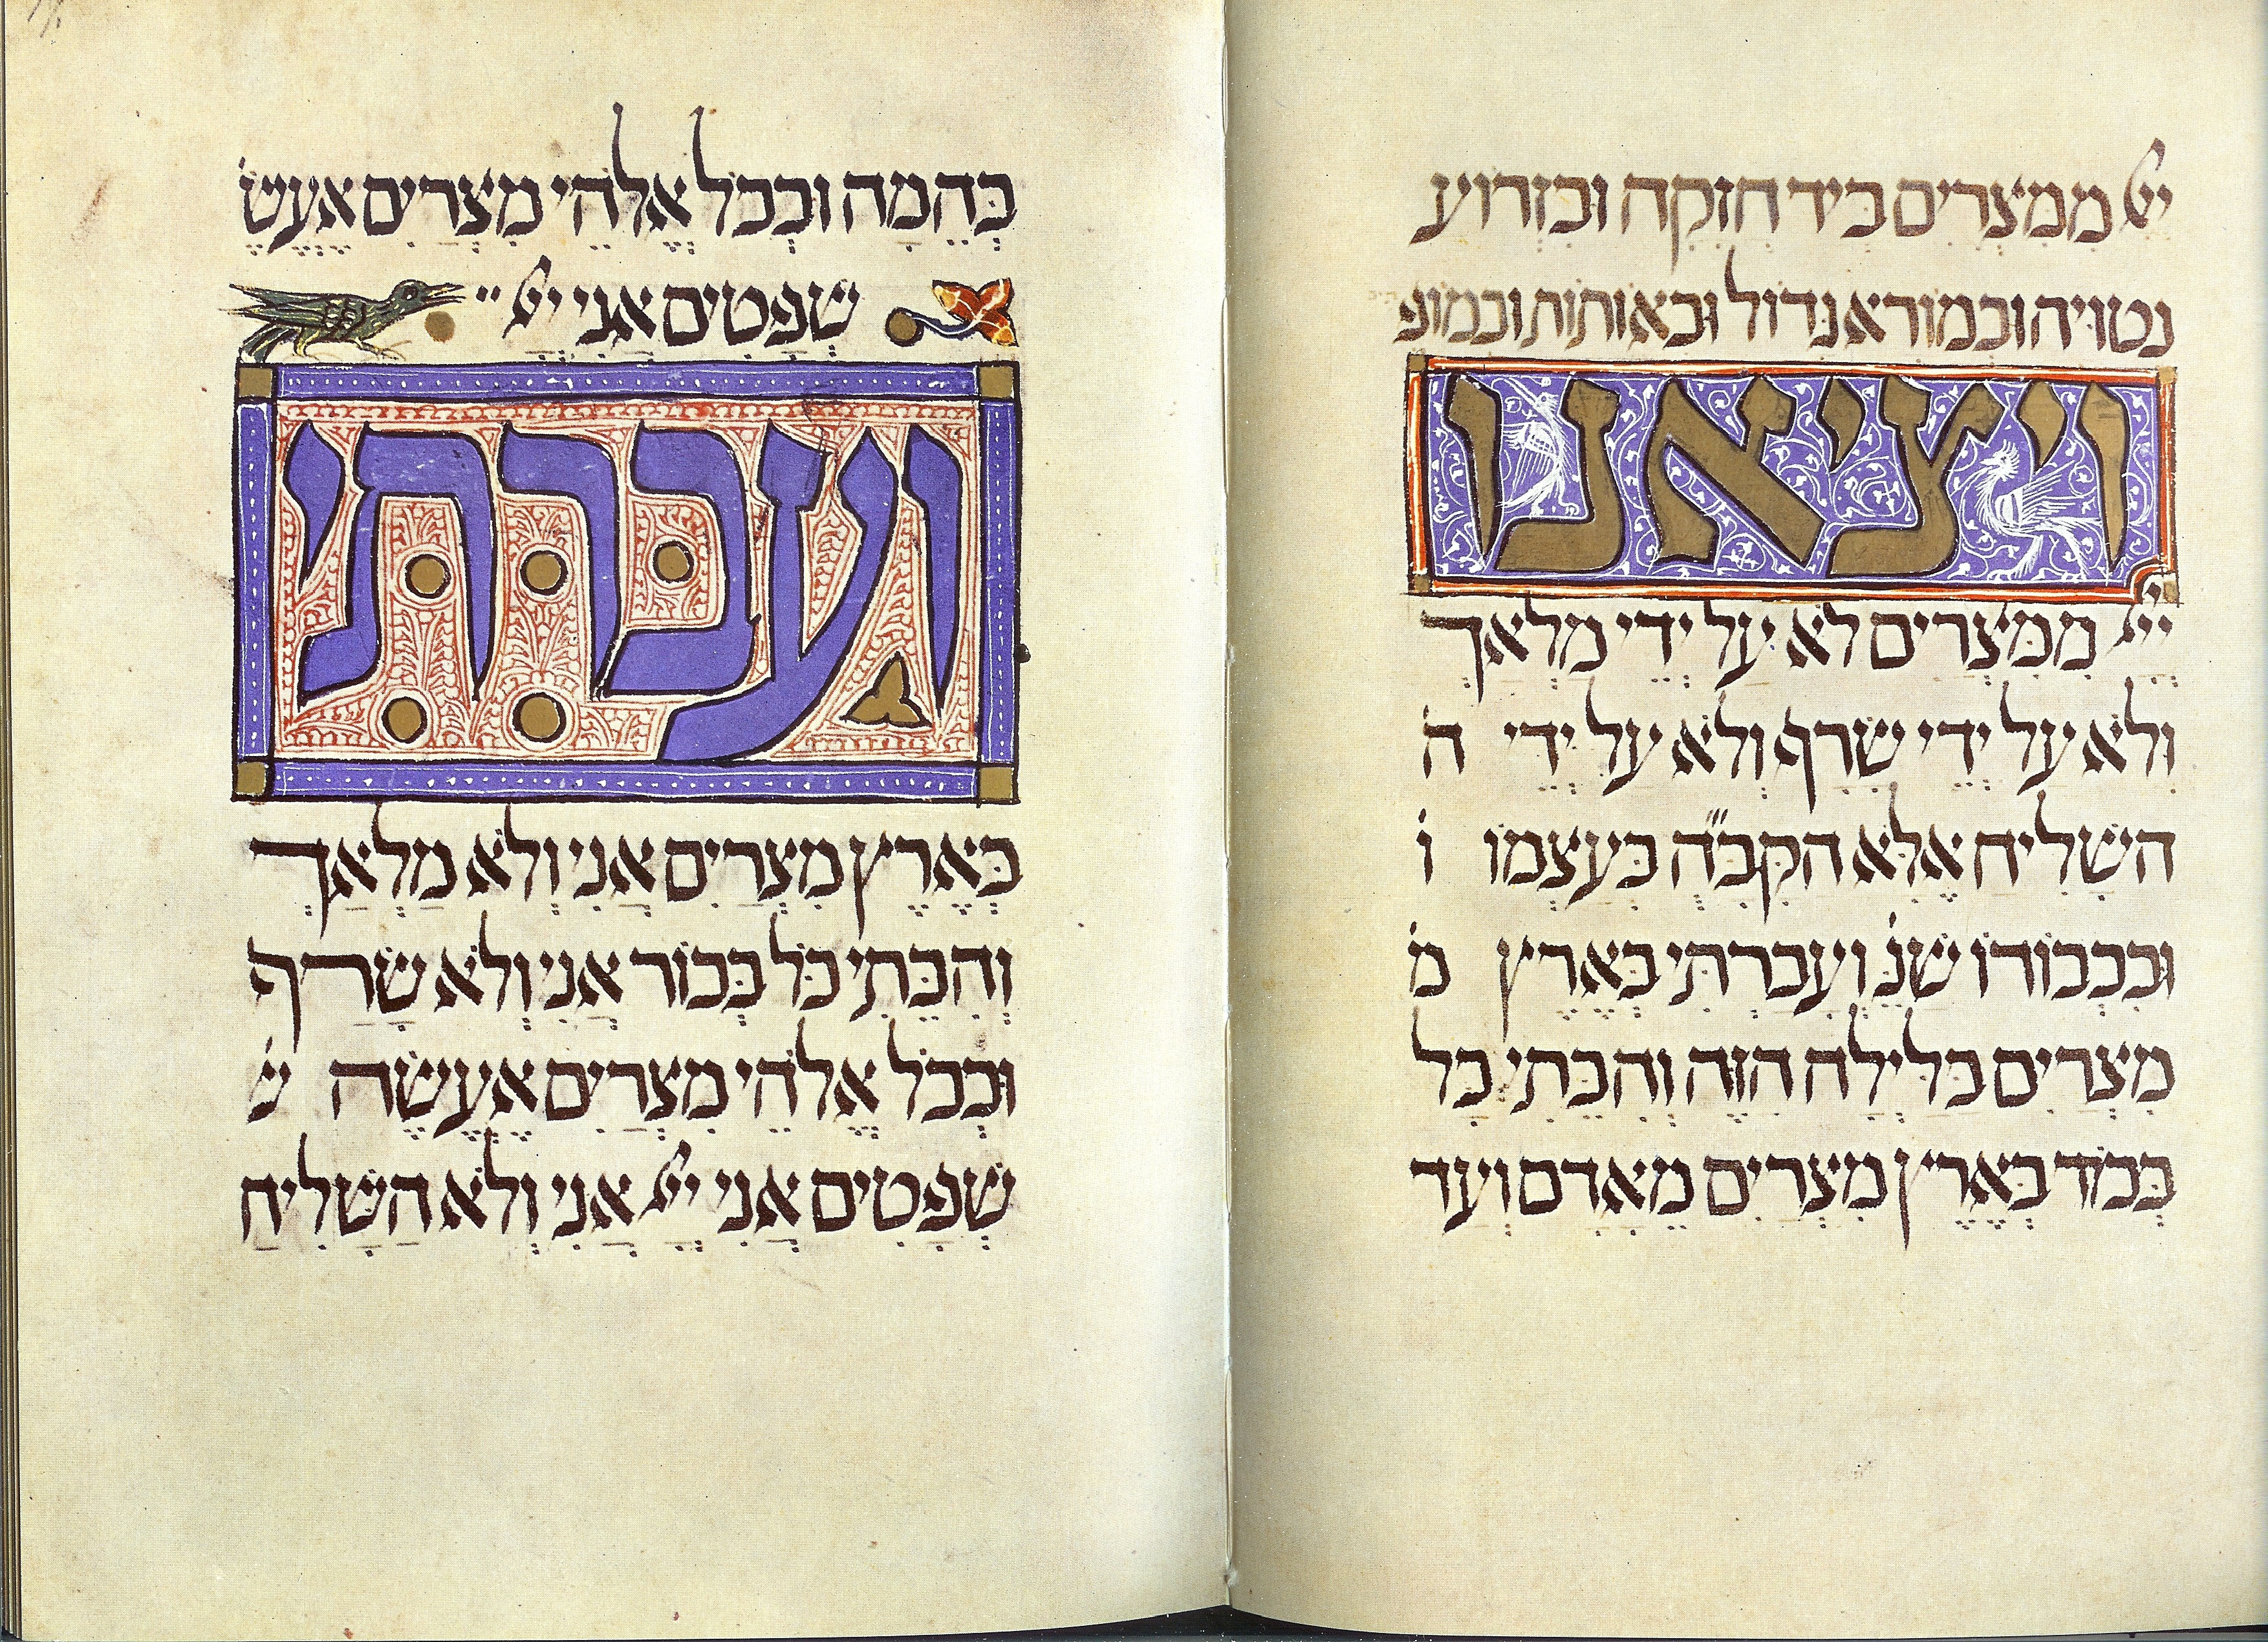 יי ממצרים ביד חזקה ובזרוע
נטויה ובמורא גדול ובאותות ובמופ תים
ויציאנו
יְיָ מִמִּצְרַיִם לֹא עַל יְדֵי מַלְאָךְ
וְלֹא עַל יְדֵי שָׂרָף וְלֹא עַל יְדֵי ה
הַשָּׁלִיחַ אֶלָּא הקב״ה בְּעַצְמוֹ ו
וּבִכְבוֹדוֹ שֶׁנֶּ וְעָבַרְתִּי בְּאֶרֶץ מ
מִצְרַיִם בַּלַּיְלָה הַזֶּה וְהִכֵּתִי כָל
בְּכֹד בְּאֶרֶץ מִצְרַיִם מֵאָדָם וְעַד
בְּהֵמָה וּבְכֹל אֱלֹהֵי מִצְרַיִם אֶעֱשֶׂ
שְׁפָטִים אֲנִי יי
ועברתי
בְּאֶרֶץ מִצְרַיִם אֲנִי וְלֹא מַלְאַךְ
וְהִכֵּתִי כֹּל בְּכוֹר אֲנִי וְלֹא שָׂרַף
וּבְכֹל אֱלֹהֵי מִצְרַיִם אֶעֱשֶׂה ש
שְׁפָטִים אֲנִי יְיָ אֲנִי וְלֹא הַשָּׁלִיחַ